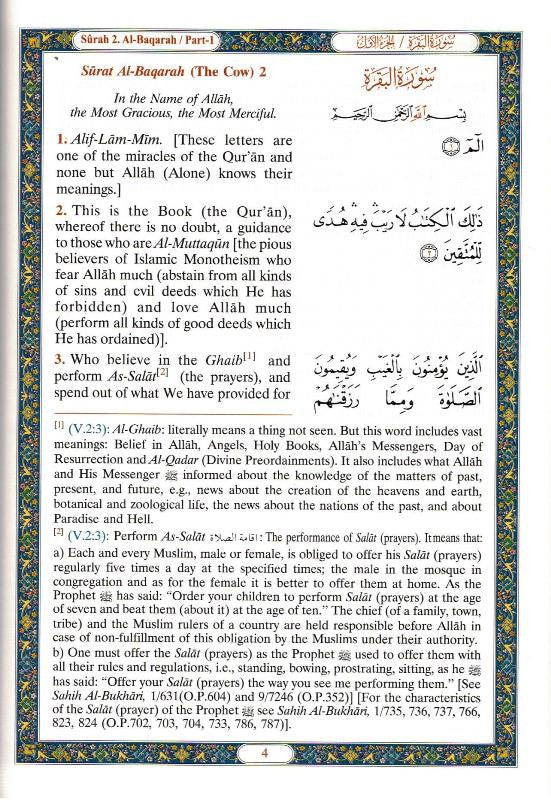 Sûrah 2. Al-Baqarah / Part-1
سورة البقرة / الجزء الأول
Sûrat Al-Baqarah (The Cow) 2
سُورَةُ البَقَرَة
In the Name of Allâh,
the Most Gracious, the Most Merciful.
بِسْمِ اللَّهِ الرَّحْمَٰنِ الرَّحِيمِ
1. Alif-Lâm-Mîm. [These letters are
one of the miracles of the Qur'ân and
none but Allâh (Alone) knows their
meanings.]
الٓمٓ ١
2. This is the Book (the Qur'ân),
whereof there is no doubt, a guidance
to those who are Al-Muttaqûn [the pious
believers of Islamic Monotheism who
fear Allâh much (abstain from all kinds
of sins and evil deeds which He has
forbidden) and love Allâh much
(perform all kinds of good deeds which
He has ordained)].
ذَٰلِكَ ٱلْكِتَٰبُ لَا رَيْبَ ۛ فِيهِ ۛ هُدًى
لِّلْمُتَّقِينَ ٢
3. Who believe in the Ghaib[1] and
perform As-Salât[2] (the prayers), and
spend out of what We have provided for
ٱلَّذِينَ يُؤْمِنُونَ بِٱلْغَيْبِ وَيُقِيمُونَ
ٱلصَّلَوٰةَ وَمِمَّا رَزَقْنَٰهُمْ
[1] (V.2:3): Al-Ghaib: literally means a thing not seen. But this word includes vast
meanings: Belief in Allâh, Angels, Holy Books, Allâh's Messengers, Day of
Resurrection and Al-Qadar (Divine Preordainments). It also includes what Allâh
and His Messenger ﷺ informed about the knowledge of the matters of past,
present, and future, e.g., news about the creation of the heavens and earth,
botanical and zoological life, the news about the nations of the past, and about
Paradise and Hell.
[2] (V.2:3): Perform As-Salât اقامة الصلاة: The performance of Salât (prayers). It means that:
a) Each and every Muslim, male or female, is obliged to offer his Salât (prayers)
regularly five times a day at the specified times; the male in the mosque in
congregation and as for the female it is better to offer them at home. As the
Prophet ﷺ has said: "Order your children to perform Salât (prayers) at the age
of seven and beat them (about it) at the age of ten." The chief (of a family, town,
tribe) and the Muslim rulers of a country are held responsible before Allâh in
case of non-fulfillment of this obligation by the Muslims under their authority.
b) One must offer the Salât (prayers) as the Prophet ﷺ used to offer them with
all their rules and regulations, i.e., standing, bowing, prostrating, sitting, as he ﷺ
has said: "Offer your Salât (prayers) the way you see me performing them." [See
Sahih Al-Bukhâri, 1/631(O.P.604) and 9/7246 (O.P.352)] [For the characteristics
of the Salât (prayer) of the Prophet ﷺ see Sahih Al-Bukhâri, 1/735, 736, 737, 766,
823, 824 (O.P.702, 703, 704, 733, 786, 787)].
4